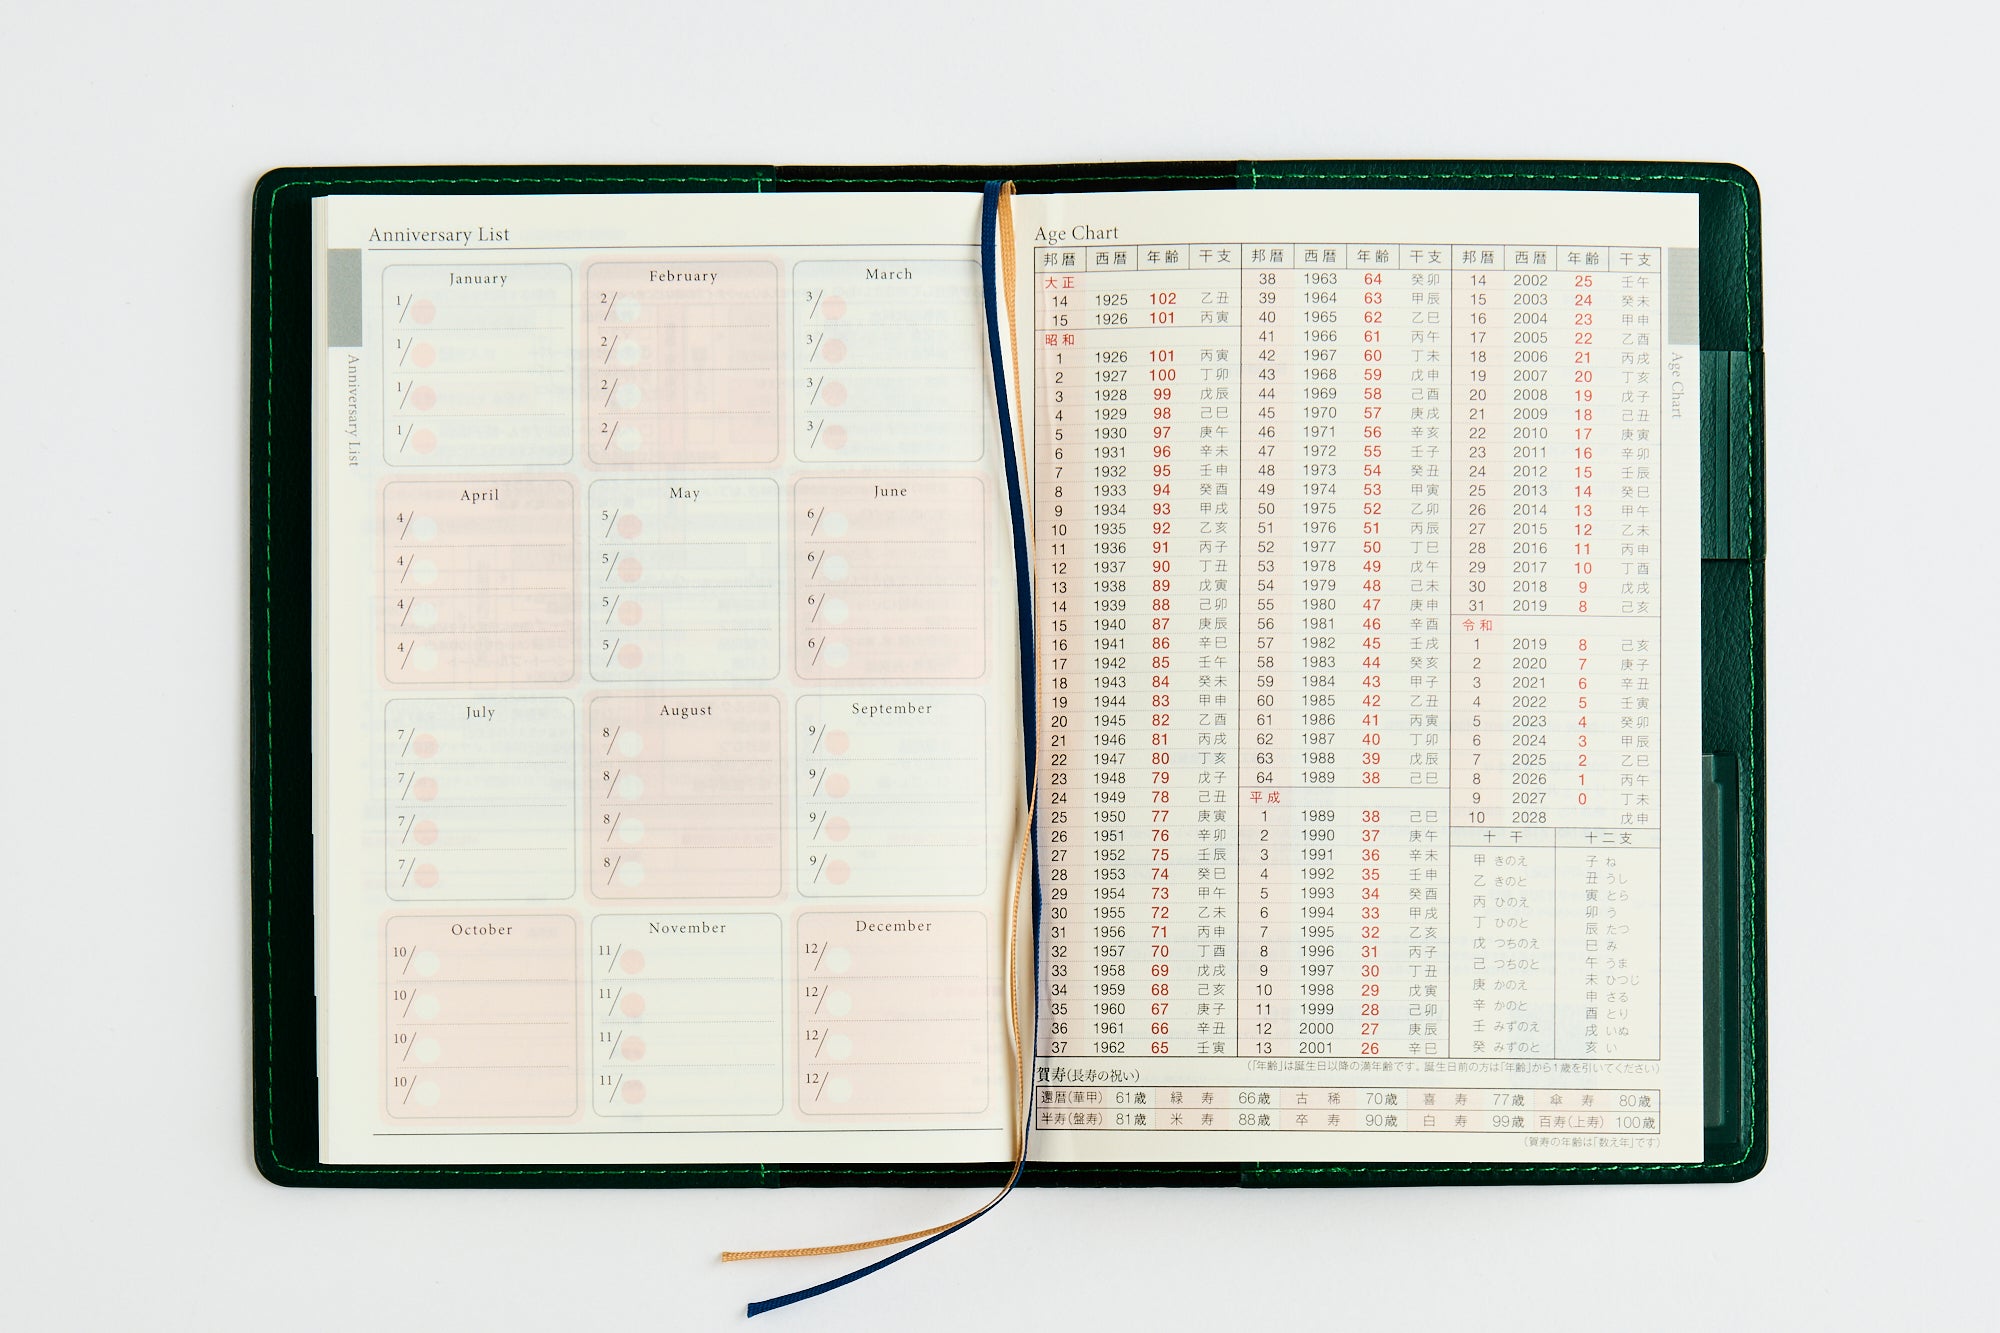 Anniversary List
Anniversary List
January
1/
1/
1/
1/
February
2/
2/
2/
2/
March
3/
3/
3/
3/
April
4/
4/
4/
4/
May
5/
5/
5/
5/
June
6/
6/
6/
6/
July
7/
7/
7/
7/
August
8/
8/
8/
8/
September
9/
9/
9/
9/
October
10/
10/
10/
10/
November
11/
11/
11/
11/
December
12/
12/
12/
12/
Age Chart
Age Chart
邦暦 西暦 年齢 干支
大正
14 1925 102 乙丑
15 1926 101 丙寅
昭和
1 1926 101 丙寅
2 1927 100 丁卯
3 1928 99 戊辰
4 1929 98 己巳
5 1930 97 庚午
6 1931 96 辛未
7 1932 95 壬申
8 1933 94 癸酉
9 1934 93 甲戌
10 1935 92 乙亥
11 1936 91 丙子
12 1937 90 丁丑
13 1938 89 戊寅
14 1939 88 己卯
15 1940 87 庚辰
16 1941 86 辛巳
17 1942 85 壬午
18 1943 84 癸未
19 1944 83 甲申
20 1945 82 乙酉
21 1946 81 丙戌
22 1947 80 丁亥
23 1948 79 戊子
24 1949 78 己丑
25 1950 77 庚寅
26 1951 76 辛卯
27 1952 75 壬辰
28 1953 74 癸巳
29 1954 73 甲午
30 1955 72 乙未
31 1956 71 丙申
32 1957 70 丁酉
33 1958 69 戊戌
34 1959 68 己亥
35 1960 67 庚子
36 1961 66 辛丑
37 1962 65 壬寅
邦暦 西暦 年齢 干支
38 1963 64 癸卯
39 1964 63 甲辰
40 1965 62 乙巳
41 1966 61 丙午
42 1967 60 丁未
43 1968 59 戊申
44 1969 58 己酉
45 1970 57 庚戌
46 1971 56 辛亥
47 1972 55 壬子
48 1973 54 癸丑
49 1974 53 甲寅
50 1975 52 乙卯
51 1976 51 丙辰
52 1977 50 丁巳
53 1978 49 戊午
54 1979 48 己未
55 1980 47 庚申
56 1981 46 辛酉
57 1982 45 壬戌
58 1983 44 癸亥
59 1984 43 甲子
60 1985 42 乙丑
61 1986 41 丙寅
62 1987 40 丁卯
63 1988 39 戊辰
64 1989 38 己巳
平成
1 1989 38 己巳
2 1990 37 庚午
3 1991 36 辛未
4 1992 35 壬申
5 1993 34 癸酉
6 1994 33 甲戌
7 1995 32 乙亥
8 1996 31 丙子
9 1997 30 丁丑
10 1998 29 戊寅
11 1999 28 己卯
12 2000 27 庚辰
13 2001 26 辛巳
邦暦 西暦 年齢 干支
14 2002 25 壬午
15 2003 24 癸未
16 2004 23 甲申
17 2005 22 乙酉
18 2006 21 丙戌
19 2007 20 丁亥
20 2008 19 戊子
21 2009 18 己丑
22 2010 17 庚寅
23 2011 16 辛卯
24 2012 15 壬辰
25 2013 14 癸巳
26 2014 13 甲午
27 2015 12 乙未
28 2016 11 丙申
29 2017 10 丁酉
30 2018 9 戊戌
31 2019 8 己亥
令和
1 2019 8 己亥
2 2020 7 庚子
3 2021 6 辛丑
4 2022 5 壬寅
5 2023 4 癸卯
6 2024 3 甲辰
7 2025 2 乙巳
8 2026 1 丙午
9 2027 0 丁未
10 2028 戊申
十干
甲 きのえ
乙 きのと
丙 ひのえ
丁 ひのと
戊 つちのえ
己 つちのと
庚 かのえ
辛 かのと
壬 みずのえ
癸 みずのと
十二支
子 ね
丑 うし
寅 とら
卯 う
辰 たつ
巳 み
午 うま
未 ひつじ
申 さる
酉 とり
戌 いぬ
亥 い
(「年齢」は誕生日以降の満年齢です。誕生日前の方は「年齢」から1歳を引いてください)
賀寿(長寿の祝い)
還暦(華甲) 61歳 緑寿 66歳 古稀 70歳 喜寿 77歳 傘寿 80歳
半寿(盤寿) 81歳 米寿 88歳 卒寿 90歳 白寿 99歳 百寿(上寿) 100歳
(賀寿の年齢は「数え年」です)